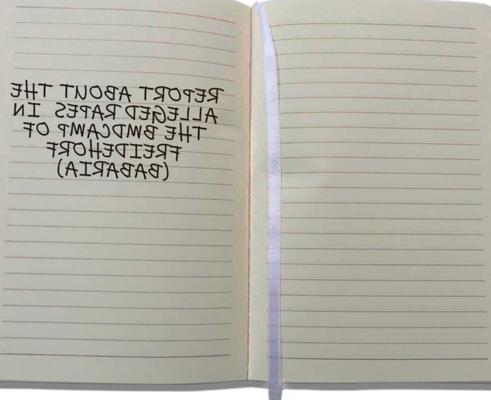 REPORT ABOUT THE
ALLEGED RAPES IN
THE BWDCAMP OF
FREIDEHORF
(BABARIA)